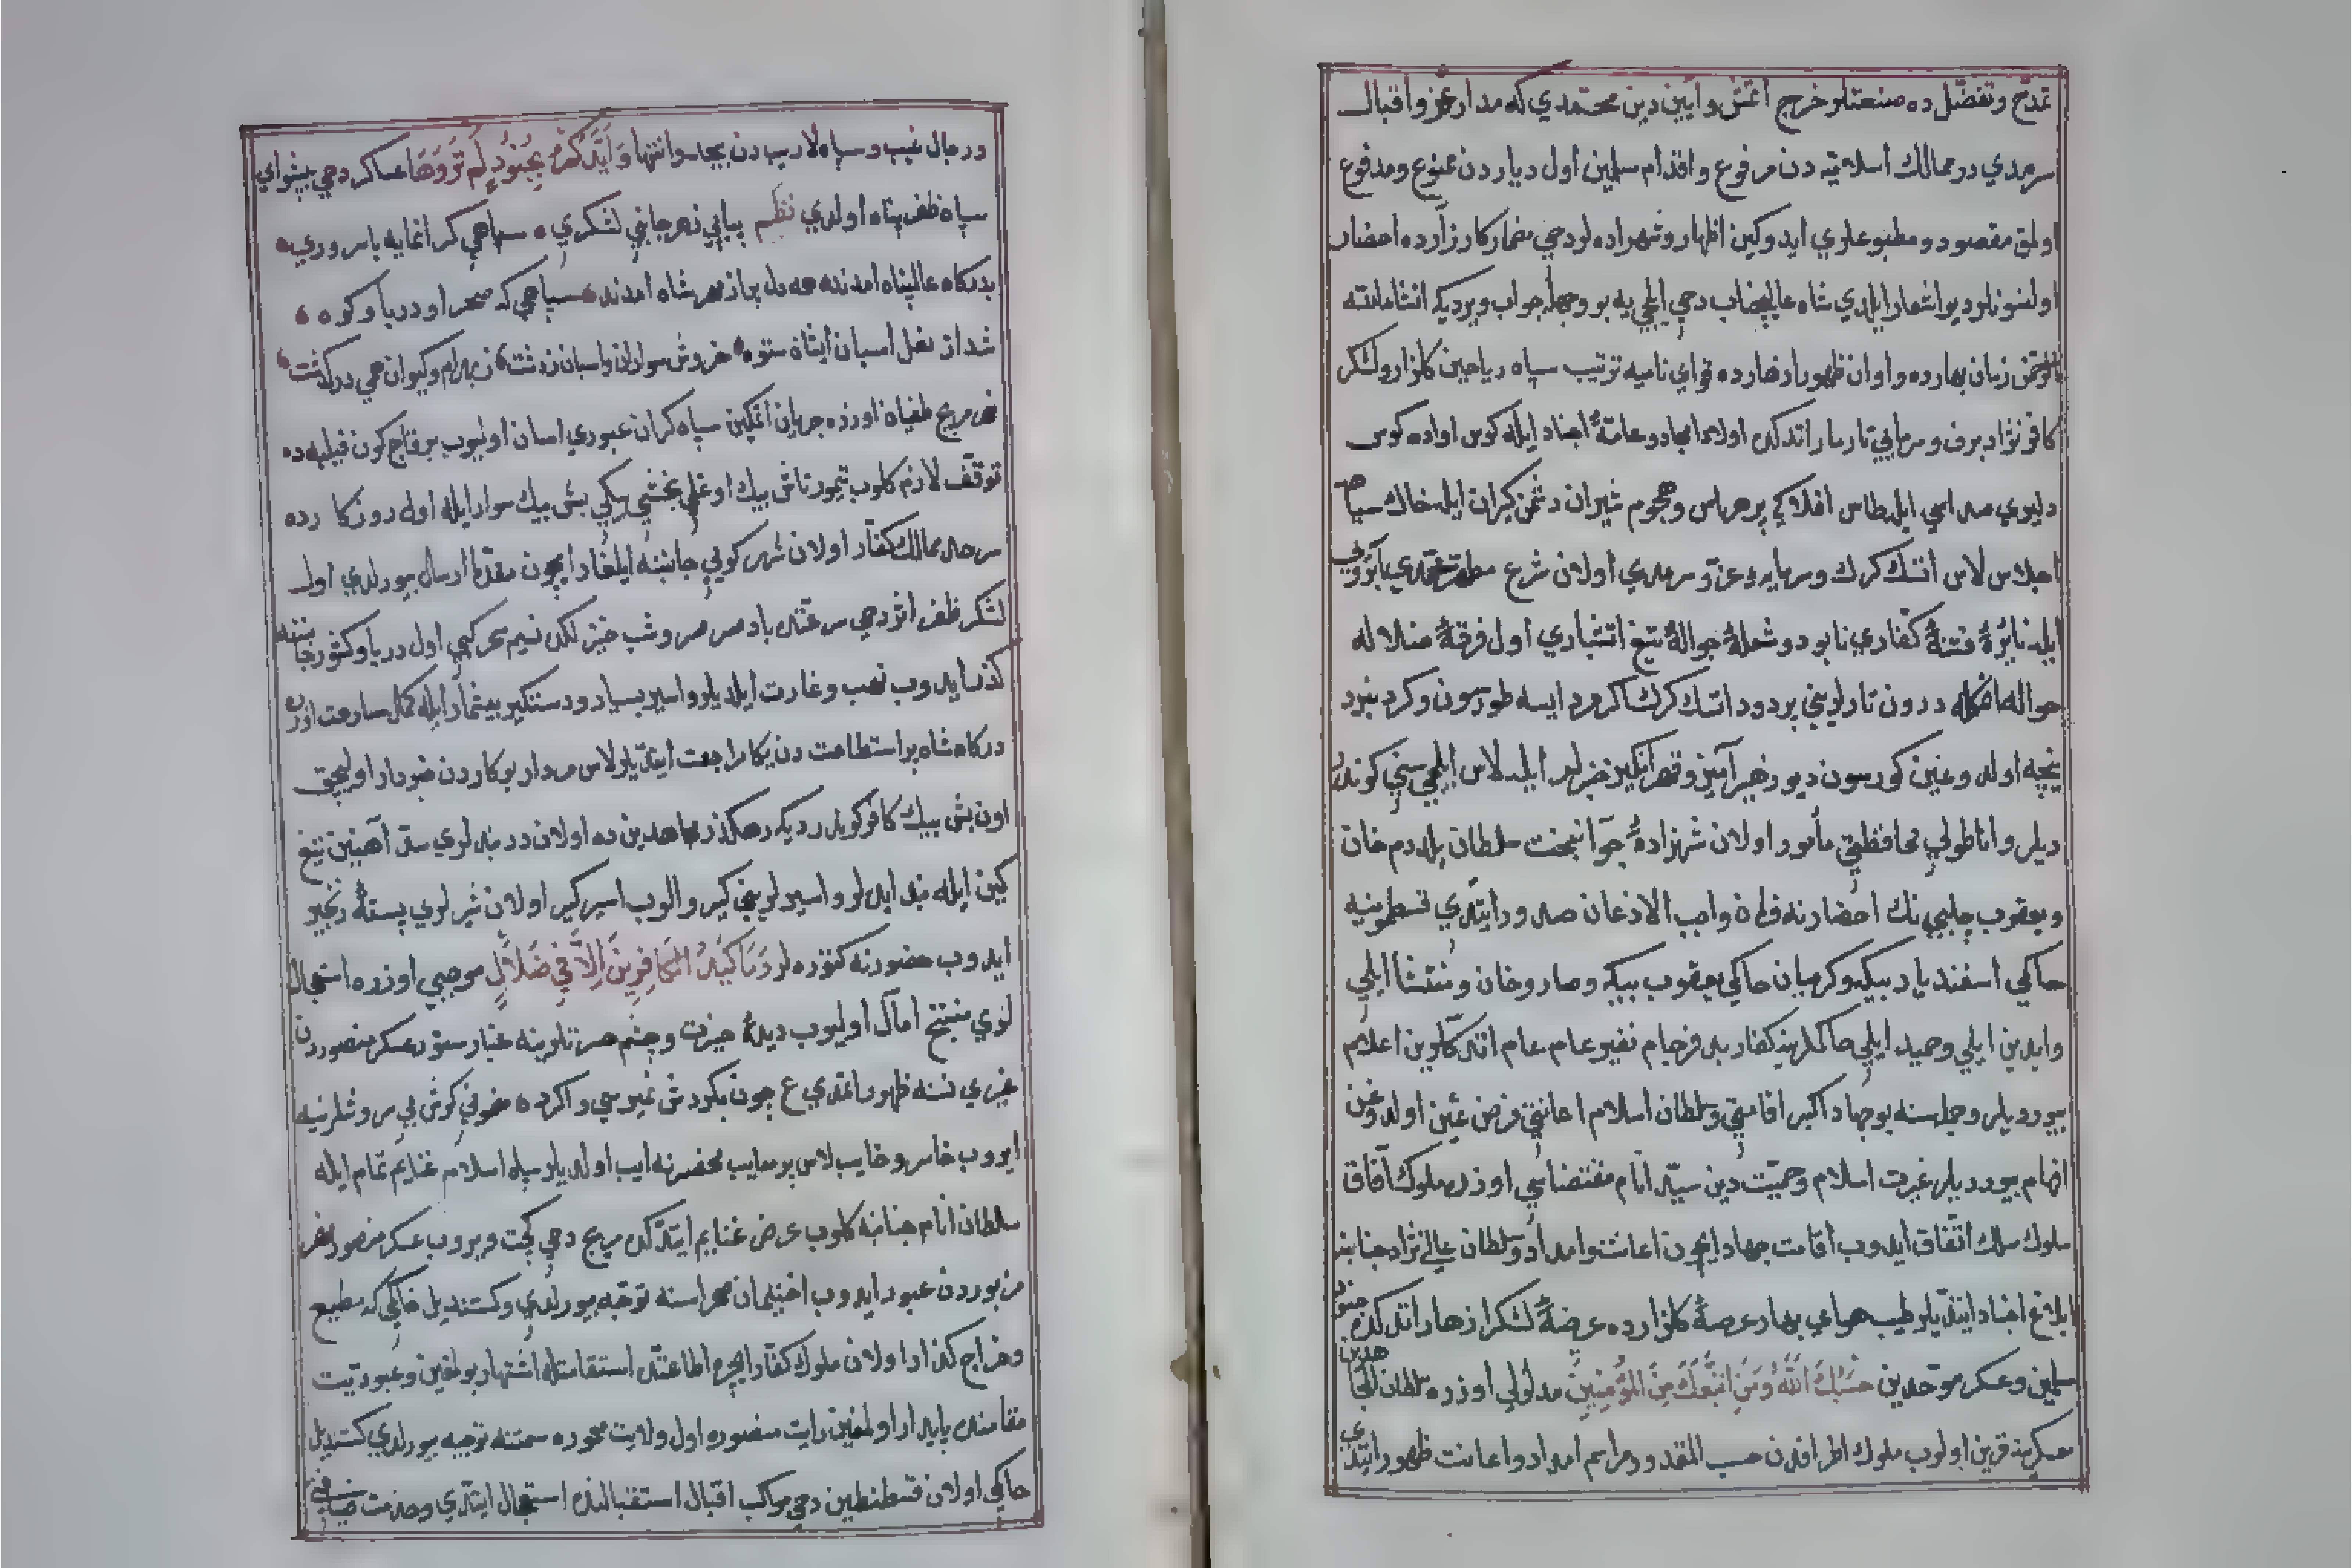 تمدّح وتفضّل ده صنعتلر خرج اتمش وآيين دين محمّدي كه مدار عز واقبال
سرمدي در ممالك اسلاميّه دن مرفوع واقدام مسلمين اول ديار دن ممنوع ومدفوع
اولمق مقصود ومطبوعلري ايدوكين اظهار وشهزاده لر دخي مضمار كارزارده احضار
اولنسونلر ديو اشعار ايلدي شاه عاليجناب دخي ايلچي يه بو وجهله جواب ويرديكه انشاءالله
الرّحمن زمان بهارده واوان ظهور ازهارده قواي ناميه ترتيب سپاه رياحين كلزار ولشكر
كافور نژاد برف وسرمايي تارمار اتدكده اولاد امجاد وعامّهٔ اجناد ايله كوس اواده كوس
دليري صداسي ايله طاس افلاكي پر هراس وهجوم شيران دشمن كيران ايله خاك سياهه
اجلاس لاس اتسك كرك وسرمايهٔ عزّ وسرمدي اولان شرع مطهّر محمّدي
ايله نائرهٔ فتنهٔ كفّاري نابود وشعلهٔ جوالهٔ تيغ اتشباري اول فرقهٔ ضلاله
حواله اتمكله درون تارلريني پر دود اتسك كرك اكر مرد ايسه طورسون وكرد نبرد
نيجه اولدوغين كورسون ديو زهر آميز وقهر انكيز خبرلر ايله لاس ايلچي سني كوندر
ديلر واناطولي محافظتي مأمور اولان شهزادهٔ جوانبخت سلطان يلدرم خان
ويعقوب چلبي نك احضارنه فرمان واجب الاذعان صدور ايتدي قسطمونيه
حاكمي اسفنديار بيكه وكرميان حاكمي يعقوب بيكه وصاروخان ومنتشا ايلي
وايدين ايلي وحميد ايلي حاكملرينه كفار بد فرجام نفير عام اتدكلرين اعلام
بيورديلر وجمله سنه بو جهاد اكبر اقامتي وسلطان اسلام اعانتي فرض عين اولدوغن
افهام بيورديلر غيرت اسلام وحميّت دين سيّد انام مقتضاسي اوزره ملوك آفاق
سلوك مسلك اتّفاق ايدوب اقامت جهاد ايچون اعانت وامداد وسلطان عالي نژاد جنابنه
ابلاغ اجناد ايتديلر طيب هواي بهار عرصهٔ كلزارده عرضهٔ لشكر ازهار اتدكده جنود
مسلمين وعسكر موحّدين حَسْبُكَ اللّٰهُ وَمَنِ اتَّبَعَكَ مِنَ الْمُؤْمِنِينَ مدلولي اوزره سلطان المجاهدين
معسكرينه قرين اولوب ملوك اطرافدن حسب المقدور مراسم امداد واعانت ظهور ايتدي
ورجال غيب وسپاه لاريب دن بيحد وانتها وَاَيَّدَكُمْ بِجُنُودٍ لَمْ تَرَوْهَا عساكر دخي پيشواي
سپاه ظفر پناه اولدي نظم پياپي ز هر جانبي لشكري ٠ سپاهي كرانمايه با سروري ٠
بدركاه عالپناه امدند ٠ همه دل پر از مهر شاه امدند ٠ سپاهي كه صحرا ودريا وكوه ٠
شد از نعل اسپان ايشان ستوه ٠ خروش سواران واسپان ز دشت ٠ ز بهرام وكيوان همي دركذشت ٠
نهر مريج طغيان اوزره جريان اتمكين سپاه كران عبوري اسان اوليوب برقاچ كون فيلبه ده
توقّف لازم كلوب تيمورتاش بيك اوغلي يخشي بيكي بش بيك سوار ايله اوله دوزكا رده
سرحد ممالك كفّار اولان شهر كويي جانبنه ايلغار ايچون مقدّما ارسال بيورلدي اول
لشكر ظفر اثر دخي سرعتله باد صرصر وشب خيزلكده نسيم سحر كبي اول دريا وكشور جانبنه
كذر ايدوب نهب وغارت ايلديلر واسير بسيار ودستكير بيشمار ايله كمال سارعت اوزره
دركاه شاه پر استطاعت دن يكا مراجعت ايتديلر لاس مردار بو كاردن خبردار اوليجق
اون بش بيك كافر كويدرديكه رهكذر مجاهدين ده اولان دربندلري سدّ آهنين تيغ
كين ايله بند ايدلر واسيرلريني كير والوب اسيركير اولان شيرلري بستهٔ زنجير
ايدوب حضورنه كتوره لر وَمَا كَيْدُ الْكَافِرِينَ اِلَّا فِي ضَلَالٍ موجبي اوزره استعجال
لري منتج امال اوليوب ديدهٔ حيرت وچشم حسرتلرينه غبار ستور عسكر منصوردن
غيري نسنه ظهور اتمدي ع چون بكردش نميرسي واكرد ٠ مضموني كوش بي سروشلرنيه
ايروب خاسر وخايب لاس پر معايب محضرنه ايب اولديلر سپاه اسلام غنايم تمام ايله
سلطان انام جنابنه كلوب عرض غنايم ايتدكده مريج دخي كچت ويروب عسكر منصور نهر
مزبوردن عبور ايدوب اختيمان صحراسنه توجّه بيورلدي وكستنديل حاكمي كه مطيع
وخراج كذار اولان ملوك كفّار ايچره اطاعتله استقامتله اشتهار بولمغين وعبوديّت
مقامنده پايدار اولمغين رايت منصوره اول ولايت محوره سمتنه توجيه بيورلدي كستنديل
حاكمي اولان قسطنطين دخي مواكب اقبال استقبالنده استعجال ايتدي وخدمت